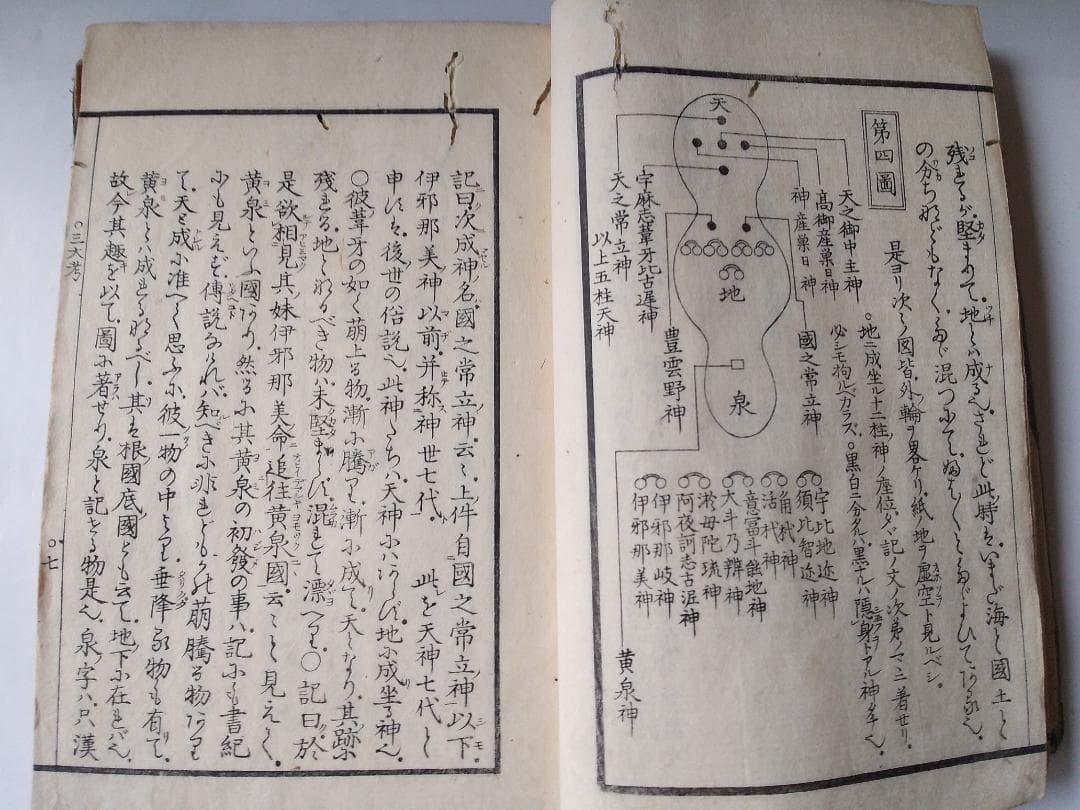 残れるが、堅まりて、地とは成る也、されど此時は、いまだ海と國土と
の分ちなどもなく、たゞ混一つにて、たゞよひてある也、
第四圖
是ヨリ次々ノ図皆、外ノ輪ヲ畧ケリ、紙ノ地ヲ虚空ト見ルベシ。
○地ニ成坐ル十二柱ノ神ノ座位ハ、記ノ文ノ次第ノマヽニ著セリ、
必シモ拘ルベカラズ。○黒白ニ分タルハ、黒キハ隠身トアル神タチ也、
天
地
泉
天之御中主神
高御産巣日神
神産巣日神
宇麻志葦牙比古遅神
天之常立神
以上五柱天神
國之常立神
豊雲野神
宇比地迩神
須比智迩神
角杙神
活杙神
意冨斗能地神
大斗乃辨神
淤母陀琉神
阿夜訶志古泥神
伊邪那岐神
伊邪那美神
黄泉神
記曰次成神名國之常立神、云々、上件自國之常立神以下
伊邪那美神以前、并称神世七代、此を天神七代と
申すは、後世の俗説也、此神たちは、天神にはあらず、地に成坐る神也、
○彼葦牙の如く萌上る物、漸に騰りて、漸に成て、天となり、其跡に
残れる、地となるべき物は、未堅まらず、混れて漂へり、○記曰、於
是欲相見其妹伊邪那美命追往黄泉國、云々と見えて、
黄泉といふ國あり、然るに其黄泉の初發の事は、記にも書紀
にも見えず、傳説なければ、知べきに非れども、かの萌騰る物ありて
て、天と成に准へて思ふに、彼一物の中より、垂降る物も有て、
黄泉とは成れるなるべし、其は根國底國とも云て、地下に在ればなり、
故今其趣を以て、圖に著せり、泉と記せる物是也、泉字は、只漢
○三大考
○七